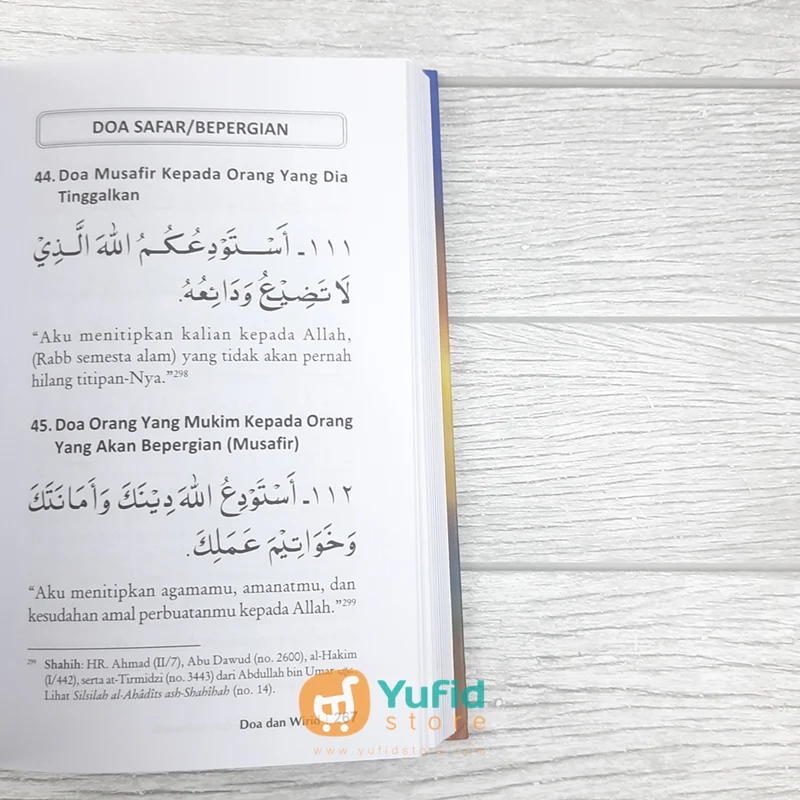 DOA SAFAR/BEPERGIAN
44. Doa Musafir Kepada Orang Yang Dia
Tinggalkan
١١١ـ أَسْتَوْدِعُكُمُ اللهَ الَّذِيْ
لَا تَضِيْعُ وَدَائِعُهُ.
“Aku menitipkan kalian kepada Allah,
(Rabb semesta alam) yang tidak akan pernah
hilang titipan-Nya.”298
45. Doa Orang Yang Mukim Kepada Orang
Yang Akan Bepergian (Musafir)
١١٢ـ أَسْتَوْدِعُ اللهَ دِيْنَكَ وَأَمَانَتَكَ
وَخَوَاتِيْمَ عَمَلِكَ.
“Aku menitipkan agamamu, amanatmu, dan
kesudahan amal perbuatanmu kepada Allah.”299
299 Shahih: HR. Ahmad (II/7), Abu Dawud (no. 2600), al-Hakim
(I/442), serta at-Tirmidzi (no. 3443) dari Abdullah bin Umar
Lihat Silsilah al-Ahâdîts ash-Shahîhah (no. 14).
Doa dan Wirid | 267
Yufid
store
www.yufidstore.com